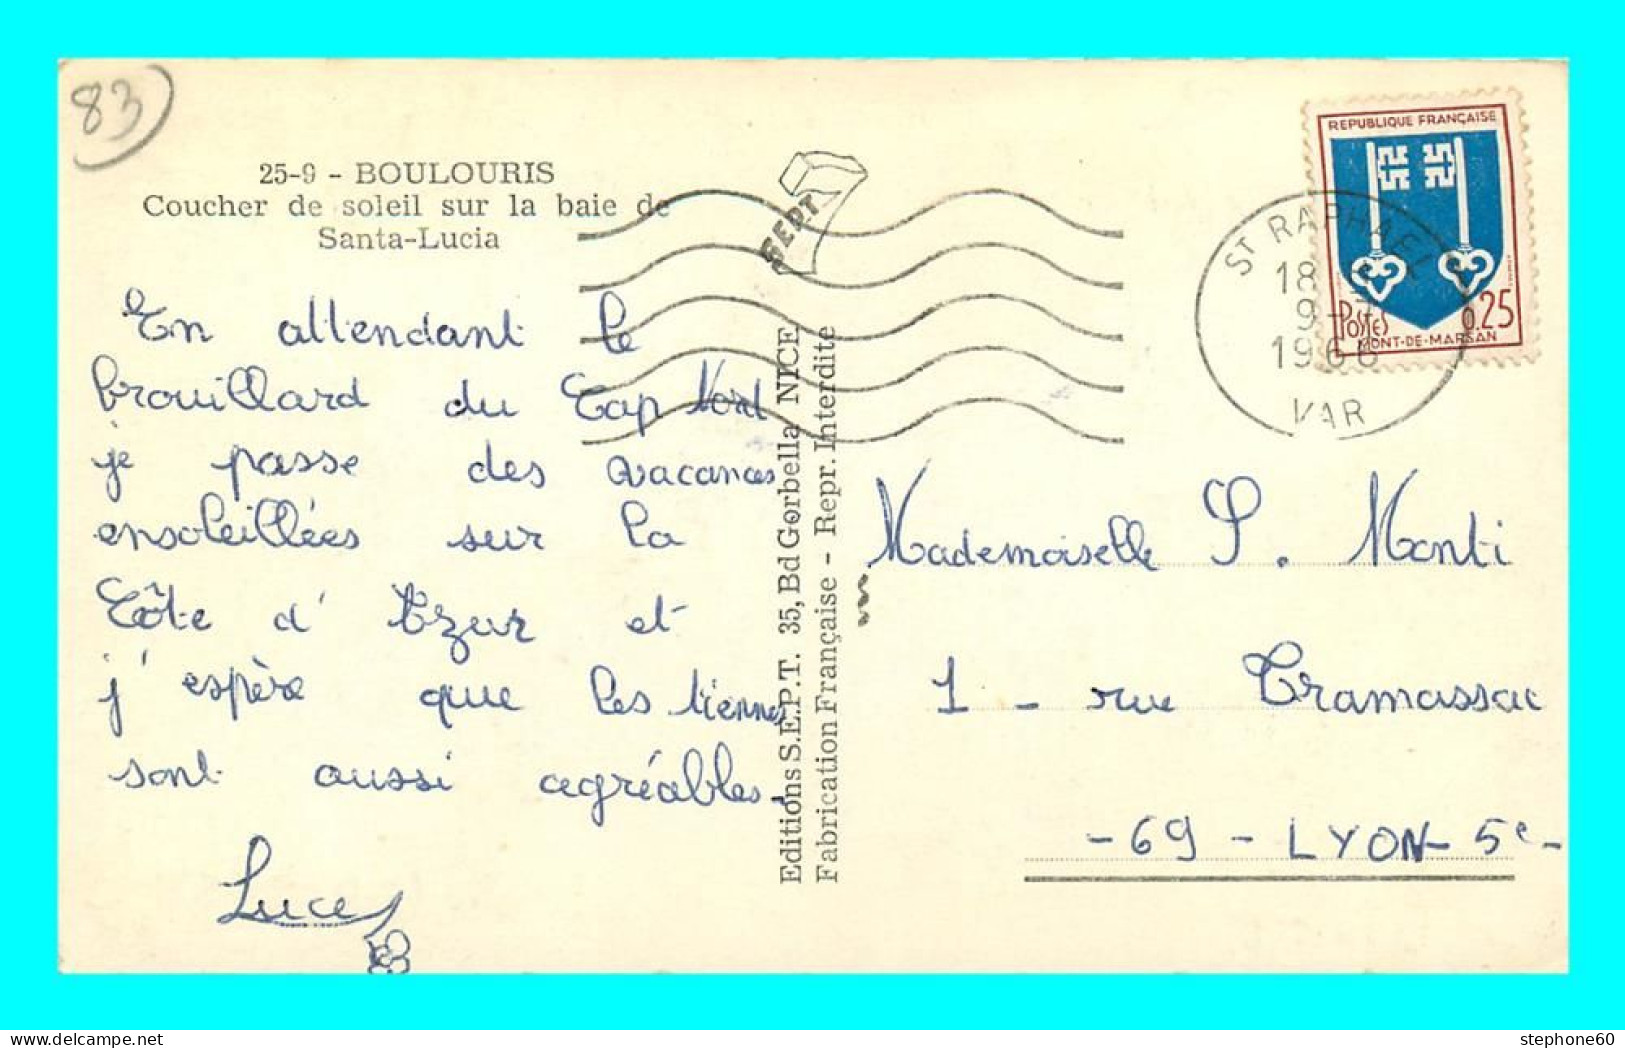 83
25-9 - BOULOURIS
Coucher de soleil sur la baie de
Santa-Lucia
En attendant le
brouillard du Cap Nord
je passe des vacances
ensoleillées sur la
Côte d'Azur et
j'espère que les tiennes
sont aussi agréables.
Luce
SEPT
Editions S.E.P.T. 35, Bd Gorbella NICE
Fabrication Française - Repr. Interdite
REPUBLIQUE FRANÇAISE
POSTES
0.25
MONT-DE-MARSAN
ST RAPHAEL
18
9-
1966
VAR
Mademoiselle S. Monti
1 - rue Tramassac
- 69 - LYON - 5e -
stephone60